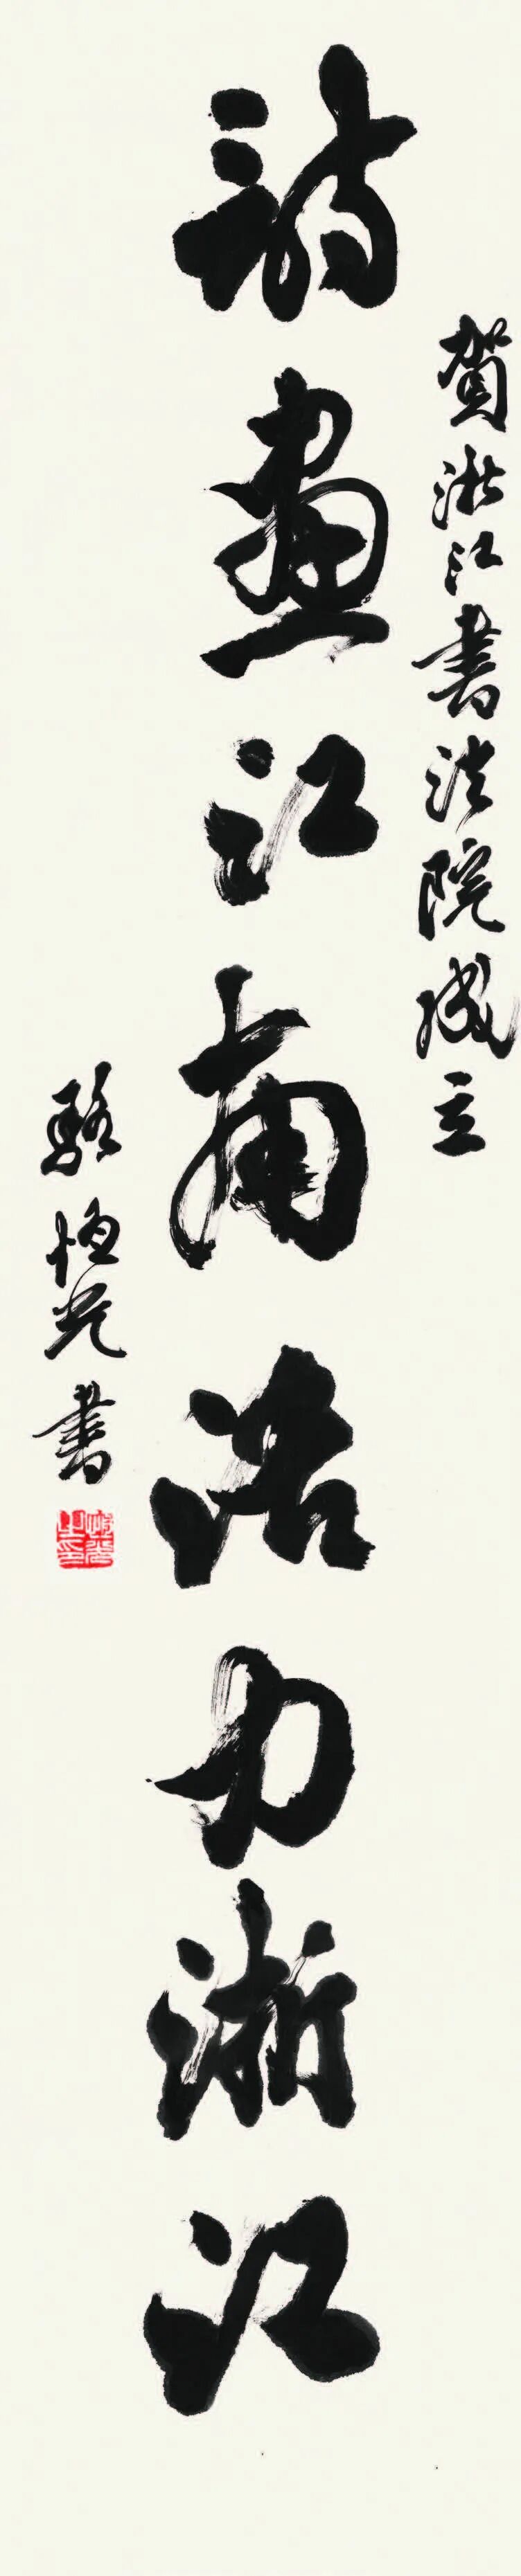 賀浙江書法院成立
詩畫江南活力浙江
駱恒光書